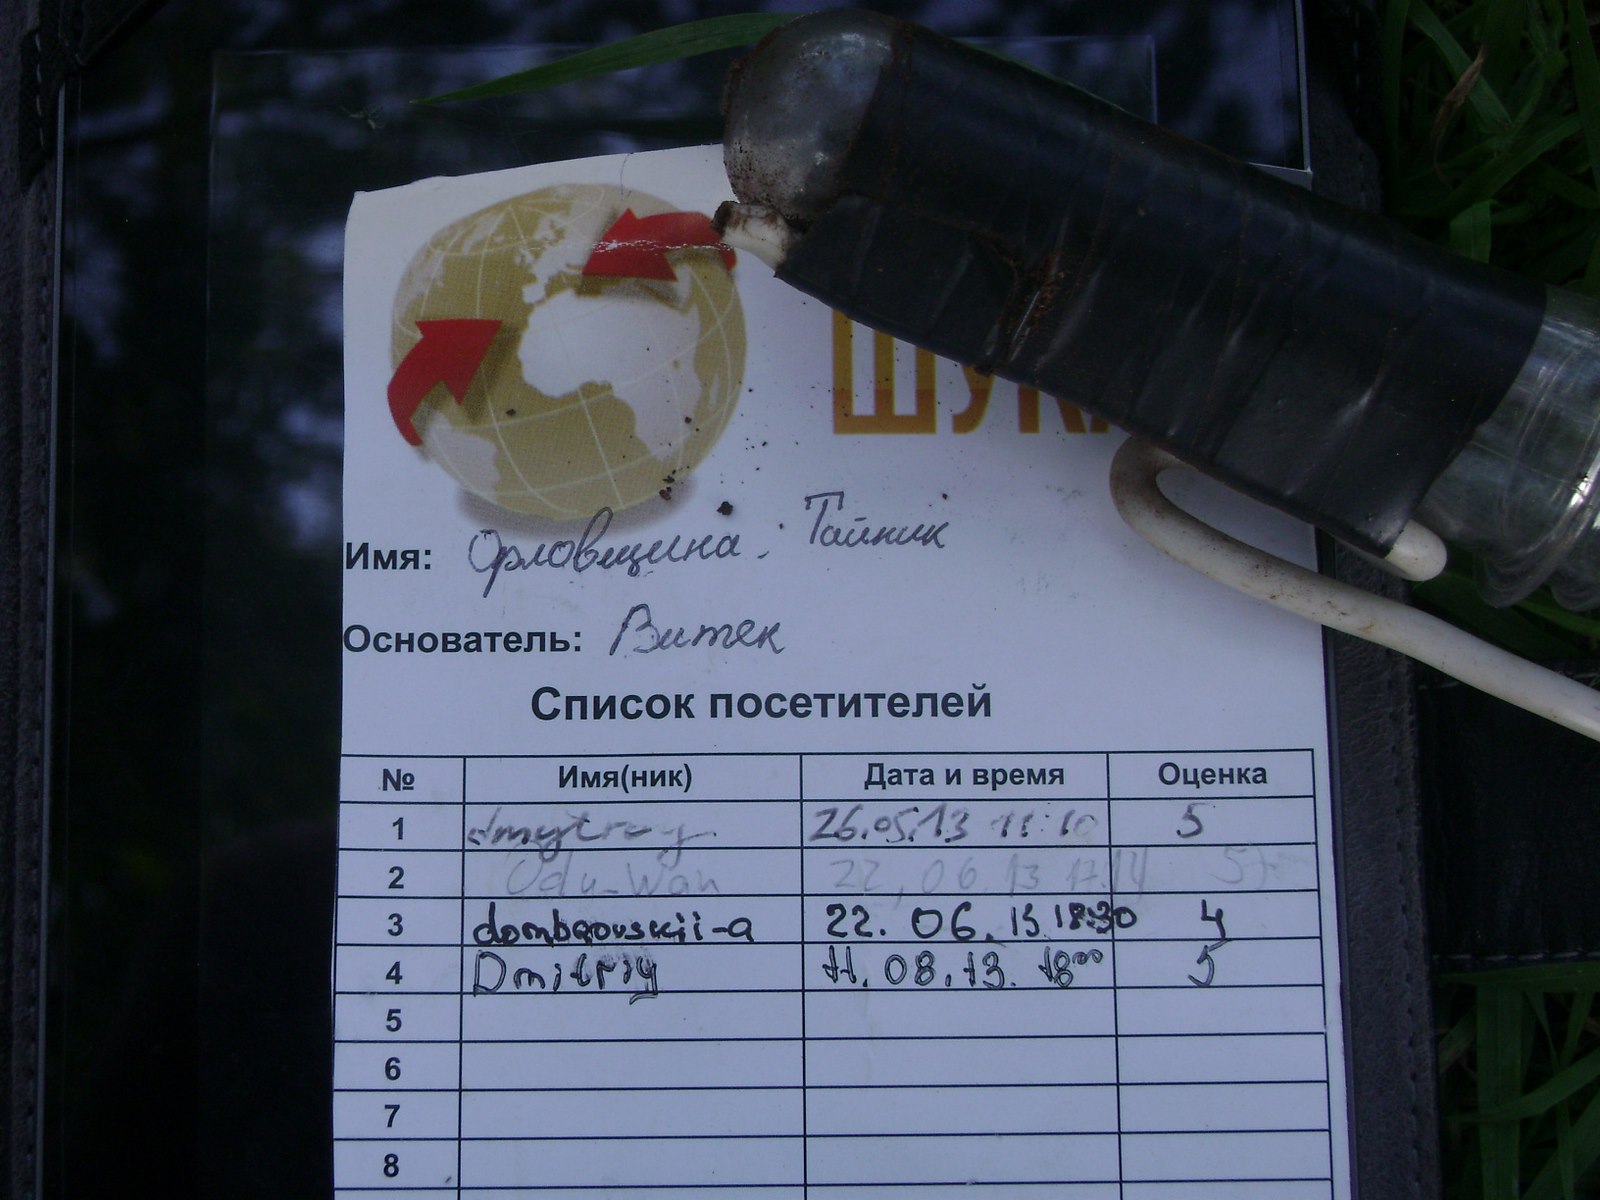 ШУКА
Имя: Орловщина. Тайник
Основатель: Витек
Список посетителей
№ Имя(ник) Дата и время Оценка
1 dmytrey 26.05.13 11:10 5
2 Odu-Wan 22.06.13 17.14 5
3 dombrovskii-a 22. 06. 13 18:30 4
4 Dmitriy 11. 08. 13. 18⁰⁰ 5
5
6
7
8